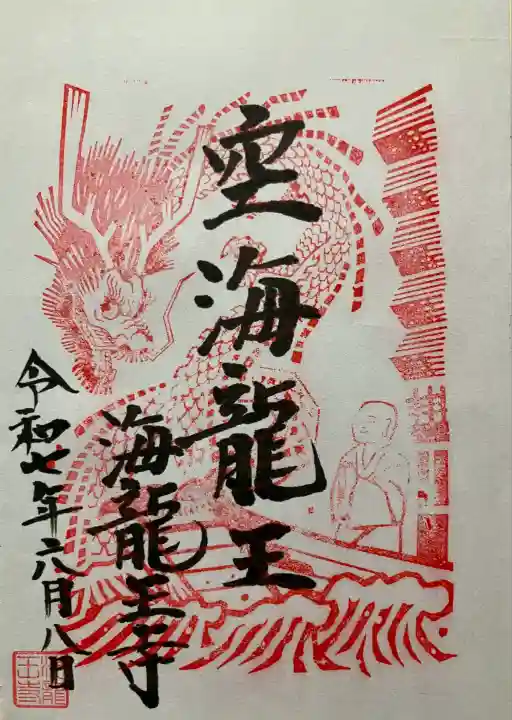 空海龍王
海龍王寺
令和七年六月八日
海龍王寺